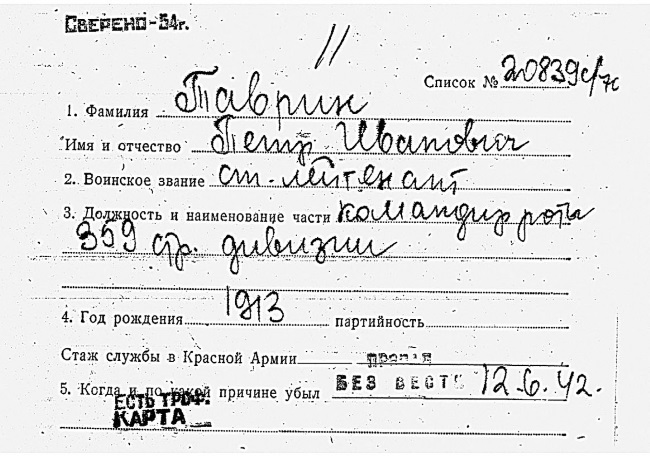 СВЕРЕНО-54г.
11
Список № 20839с/7с
1. Фамилия Таврин
Имя и отчество Петр Иванович
2. Воинское звание ст. лейтенант
3. Должность и наименование части командир роты
359 стр. дивизии
4. Год рождения 1913 партийность
Стаж службы в Красной Армии пропал
5. Когда и по какой причине убыл БЕЗ ВЕСТИ 12.6.42.
ЕСТЬ ТРОФ.
КАРТА